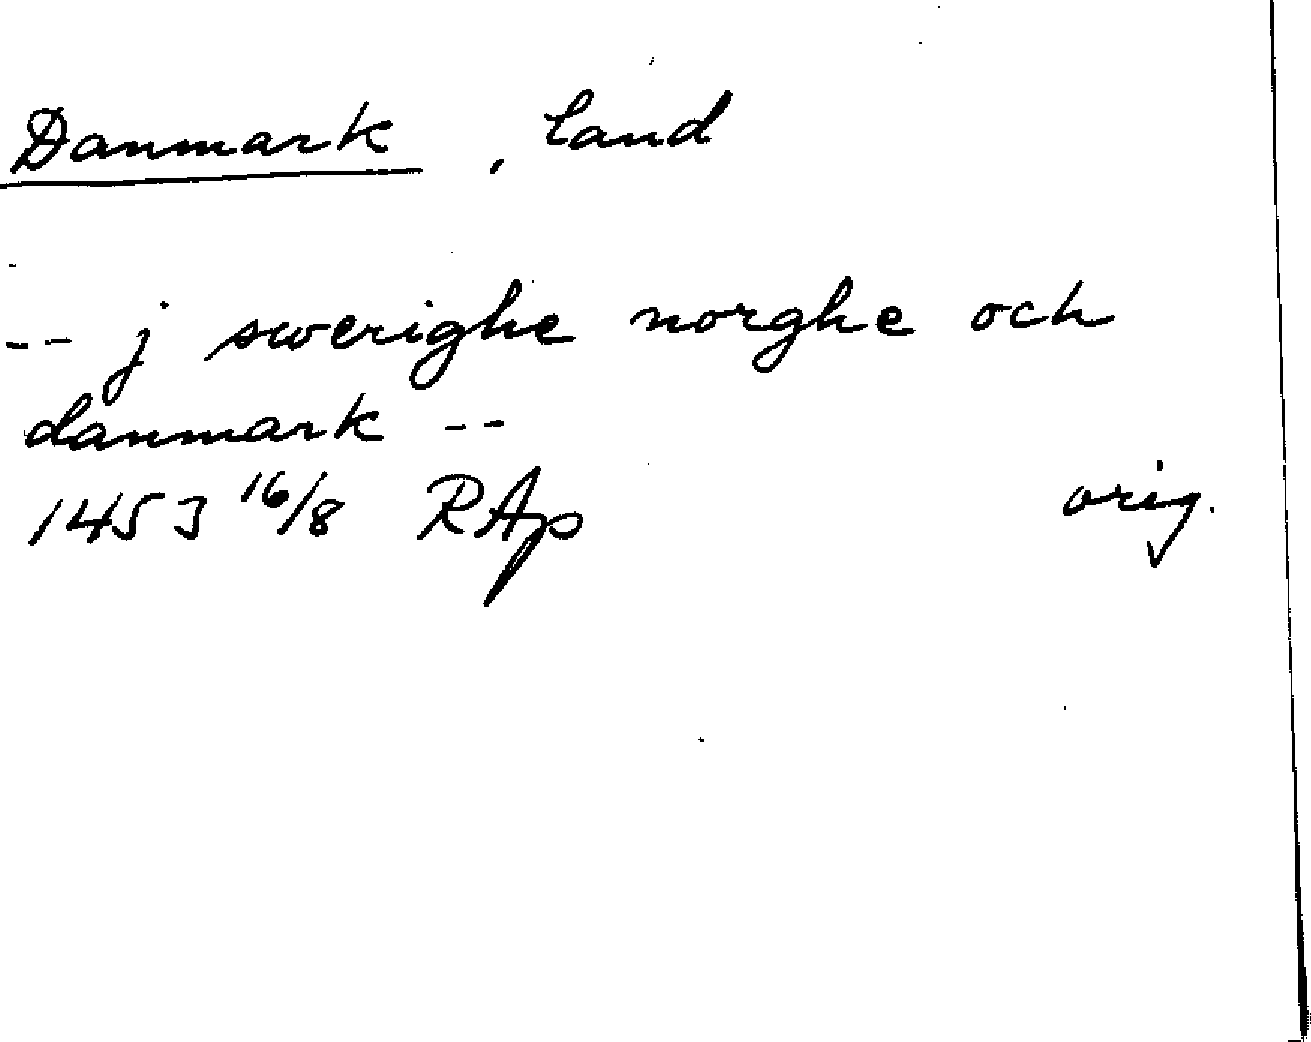 Danmark, land
-- j swerighe norghe och
danmark --
1453 16/8 RAp orig.